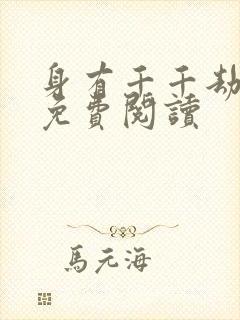 身有千千劫
免費閱讀
馬元海